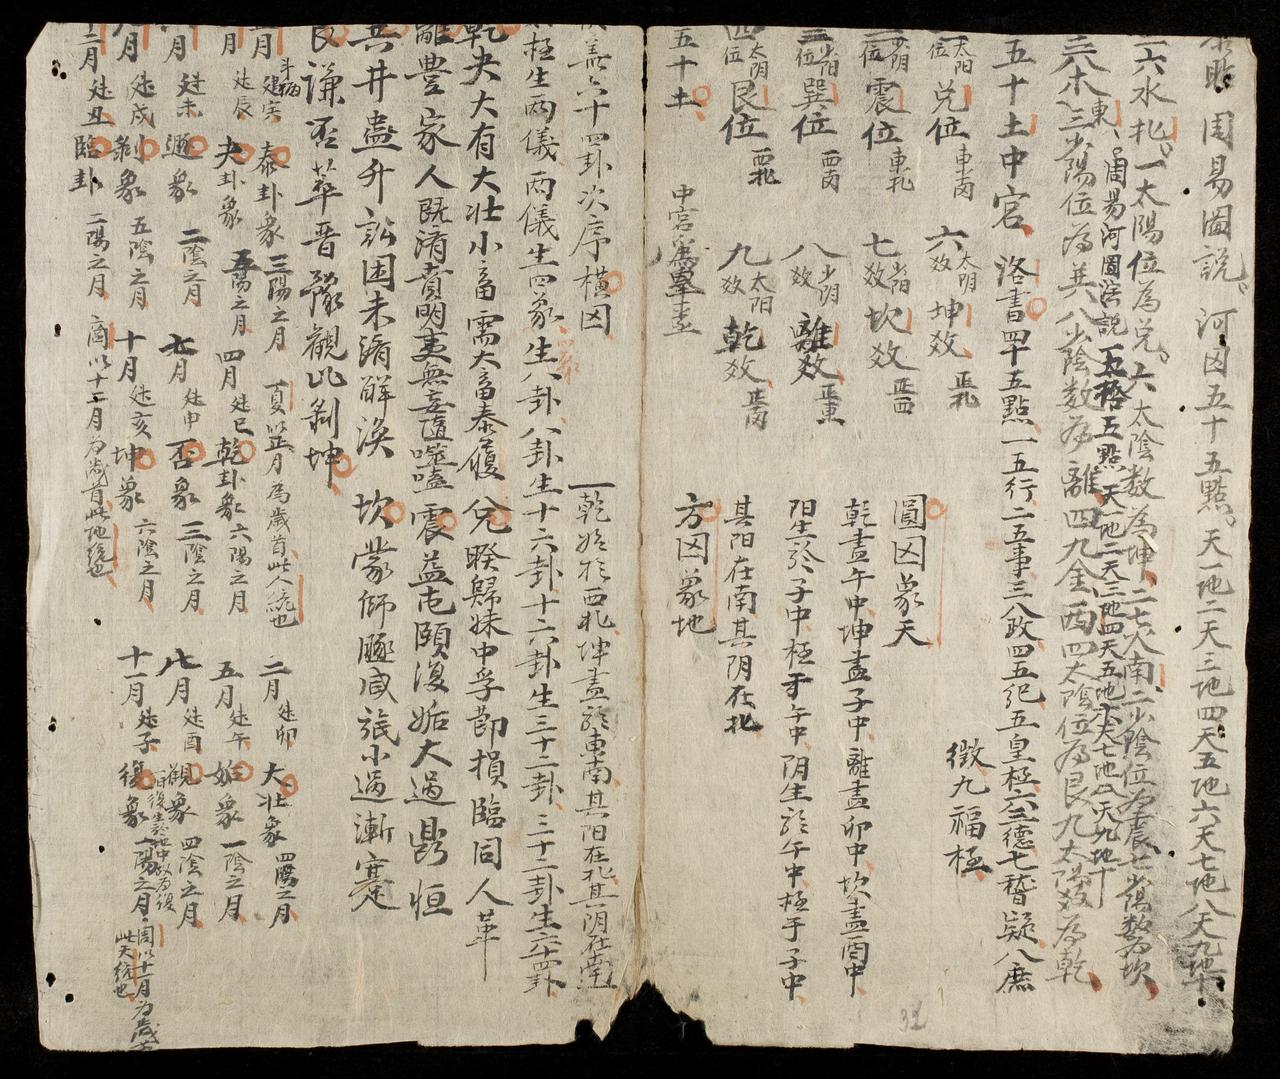 周易圖說。河図五十五點。天一地二天三地四天五地六天七地八天九地十
一六水北。一太陽位為兌。六太陰数為坤、二七火南、二少陰位為震、七少陽数為坎
東、周易河圖法説 太極五點 天一地二天三地四天五地六天七地八天九地十
三八木、三少陽位為巽八少陰数為離四九金西四太陰位為艮九太陽数為乾
五十土中宮、洛書四十五點一五行二五事三八政四五纪五皇極六三德七稽疑八庶
徵九福極
位太阳兌位東南 六效太阴坤效、正北 圓図象天
位少阴震位東北 七效少阳坎效正西 乾盡午中坤盡子中離盡卯中、坎盡酉中
三位少阳巽位西南 八效少阴離效正東 阳生於子中極于午中、阴生於午中極于子中
四位太阴艮位西北 九效太阳乾效、正南 其阳在南其阴在北
五十土 中宮為 方図象地
盖六十四卦次序橫図 一乾始於西北坤盡於東南其阳在北其阴在南
太極生两儀两儀生四象生八卦八卦生十六卦十六卦生三十二卦三十二卦生六十四卦
乾夬大有大壮小畜需大畜泰履兌睽歸妹中孚節損臨同人革
離豊家人既済賁明夷無妄隨噬嗑震益屯頤復姤大過鼎恒
巽井蠱升訟困未済解渙 坎蒙師遯咸旅小過漸蹇
艮謙否萃晋豫觀比剝坤
月斗柄建寅泰卦象三陽之月 夏以正月為歲首此人統也 二月建卯大壮象四陽之月
月建辰夬卦象五陽之月四月建巳乾卦象六陽之月 五月建午姤象一陰之月
月建未遯象二陰之月七月建申否象三陰之月 八月建酉觀象四陰之月
月建戌剝象五陰之月十月建亥坤象六陰之月 十一月建子復象一陽之月 周以十一月為歲 此天統也
二月建丑臨卦二陽之月 商以十二月为歲首此地統也
32